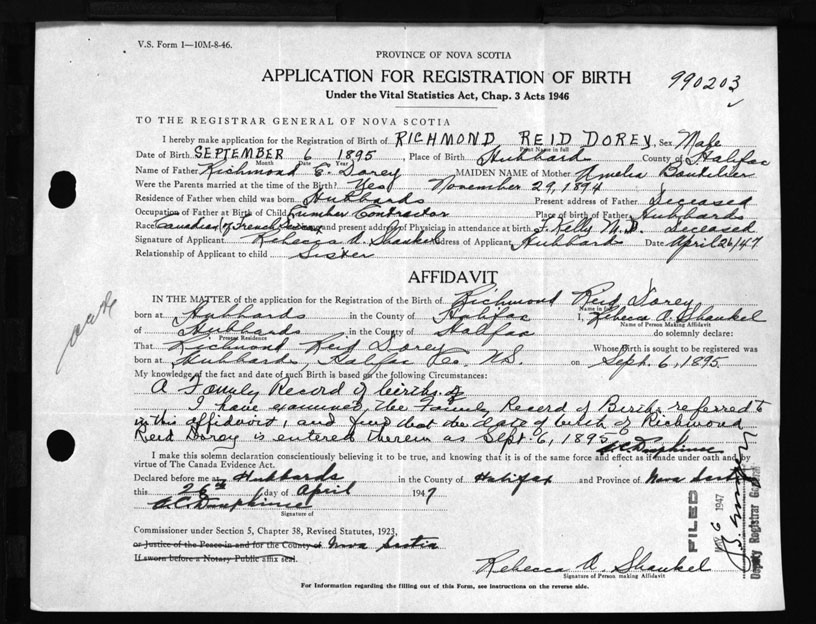 V.S. Form 1—10M-8-46.
PROVINCE OF NOVA SCOTIA
APPLICATION FOR REGISTRATION OF BIRTH
990203
Under the Vital Statistics Act, Chap. 3 Acts 1946
TO THE REGISTRAR GENERAL OF NOVA SCOTIA
I hereby make application for the Registration of Birth of RICHMOND REID DOREY, Sex Male
Print Name in full
Date of Birth SEPTEMBER 6 1895, Place of Birth Hubbards County of Halifax
Month Date Year
Name of Father Richmond E. Dorey MAIDEN NAME of Mother Amelia Boutelier
Were the Parents married at the time of the Birth? Yes November 29, 1894
Residence of Father when child was born Hubbards Present address of Father Deceased
Occupation of Father at Birth of Child Lumber Contractor Place of birth of Father Hubbards
Race Canadian (of French and present address of Physician in attendance at birth F. Kelly M.D. deceased
Signature of Applicant Rebecca A. Shankel Address of Applicant Hubbards Date April 26/47
Relationship of Applicant to child Sister
AFFIDAVIT
IN THE MATTER of the application for the Registration of Birth of Richmond Reid Dorey
Name in full
born at Hubbards in the County of Halifax I, Rebecca A. Shankel
Name of Person Making Affidavit
of Hubbards in the County of Halifax do solemnly declare:
Present Residence
That Richmond Reid Dorey Whose Birth is sought to be registered was
born at Hubbards Halifax Co. N.S. on Sept. 6, 1895.
My knowledge of the fact and date of such Birth is based on the following Circumstances:
A Family Record of births of
I have examined the Family Record of Births referred to
in this affidavit, and find that the date of birth of Richmond
Reid Dorey is entered therein as Sept. 6, 1895
A.C. Dauphinee
I make this solemn declaration conscientiously believing it to be true, and knowing that it is of the same force and effect as if made under oath and by
virtue of The Canada Evidence Act.
Declared before me at Hubbards in the County of Halifax and Province of Nova Scotia
this 26th day of April 1947
A.C. Dauphinee
Signature of
Commissioner under Section 5, Chapter 38, Revised Statutes, 1923,
or Justice of the Peace in and for the County of Nova Scotia
If sworn before a Notary Public affix seal.
Rebecca A. Shankel
Signature of Person making Affidavit
For Information regarding the filling out of this Form, see instructions on the reverse side.
FILED
6 1947
Deputy Registrar General